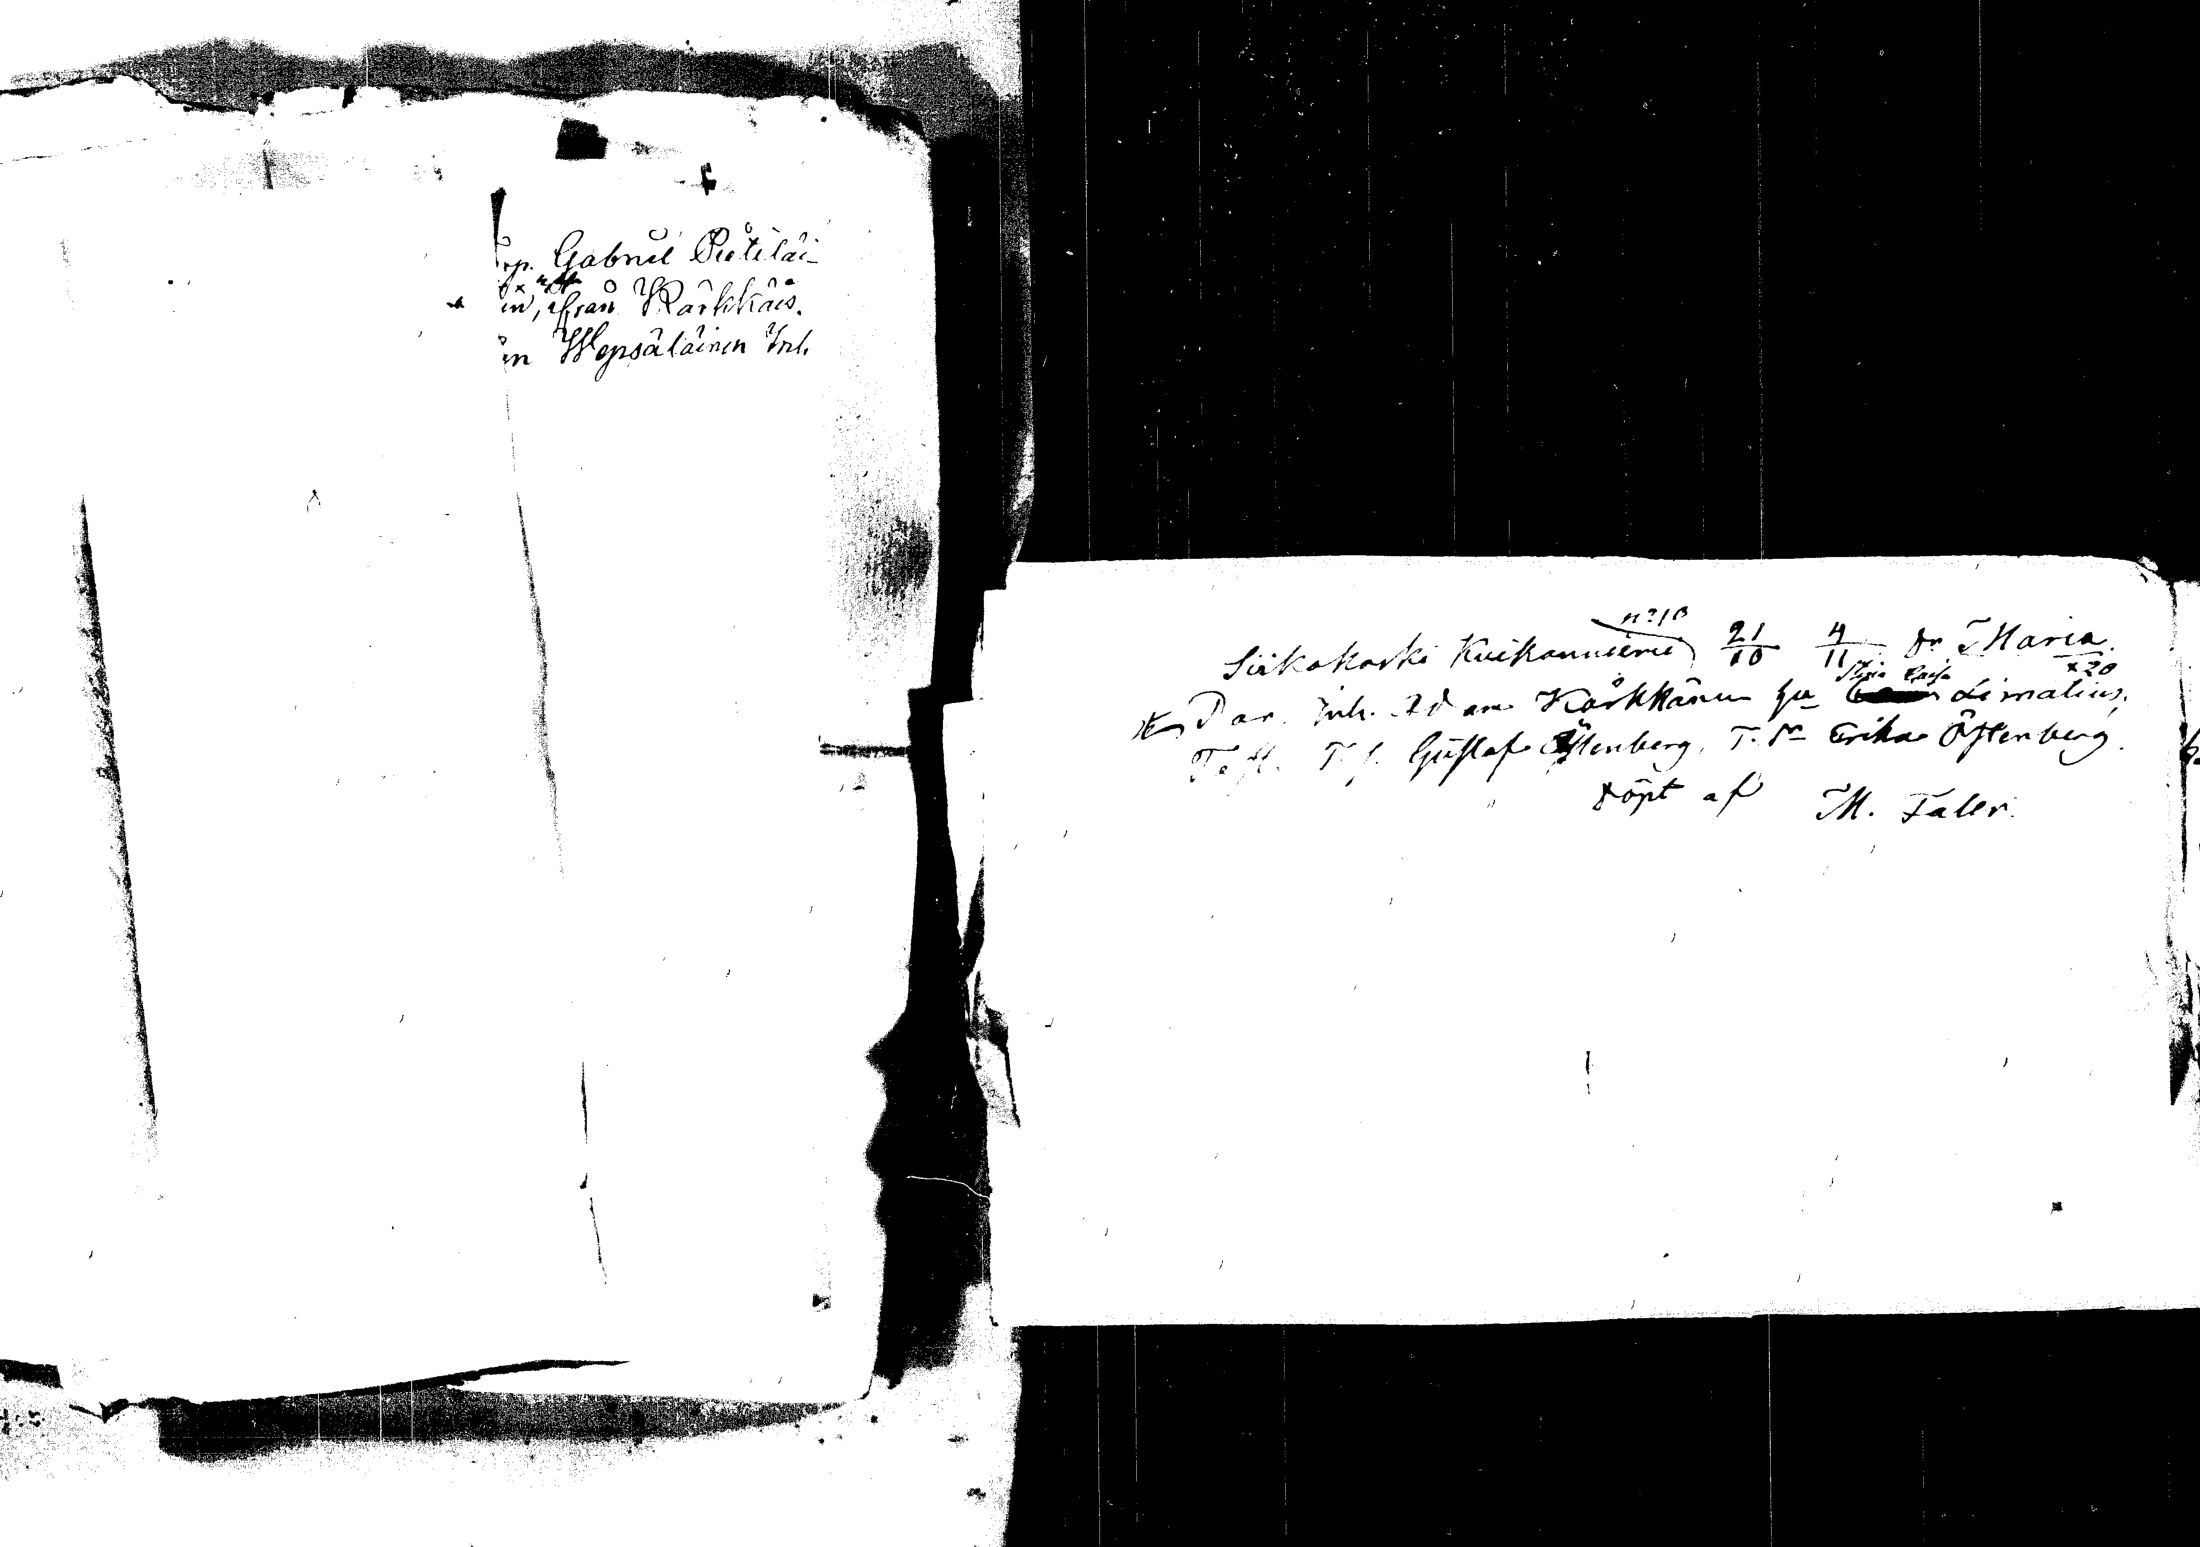 rp. Gabriel Pietiläi-
en, från Kärkkäis.
en Wepsäläinen Inh.
n:o 10
Siikakoski Kuikanniemi 21/10 4/11 dr Maria.
x 20
Par. Inh. Adam Kärkkäinen hu Limatius.
Test. Gustaf Östenberg, Erika Östenberg.
döpt af M. Faler.